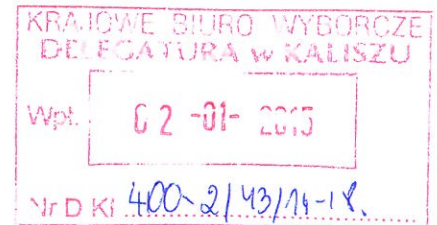 KRAJOWE BIURO WYBORCZE
DELEGATURA w KALISZU
Wpł. 02 -01- 2015
Nr DKl 400-2/43/14-18.